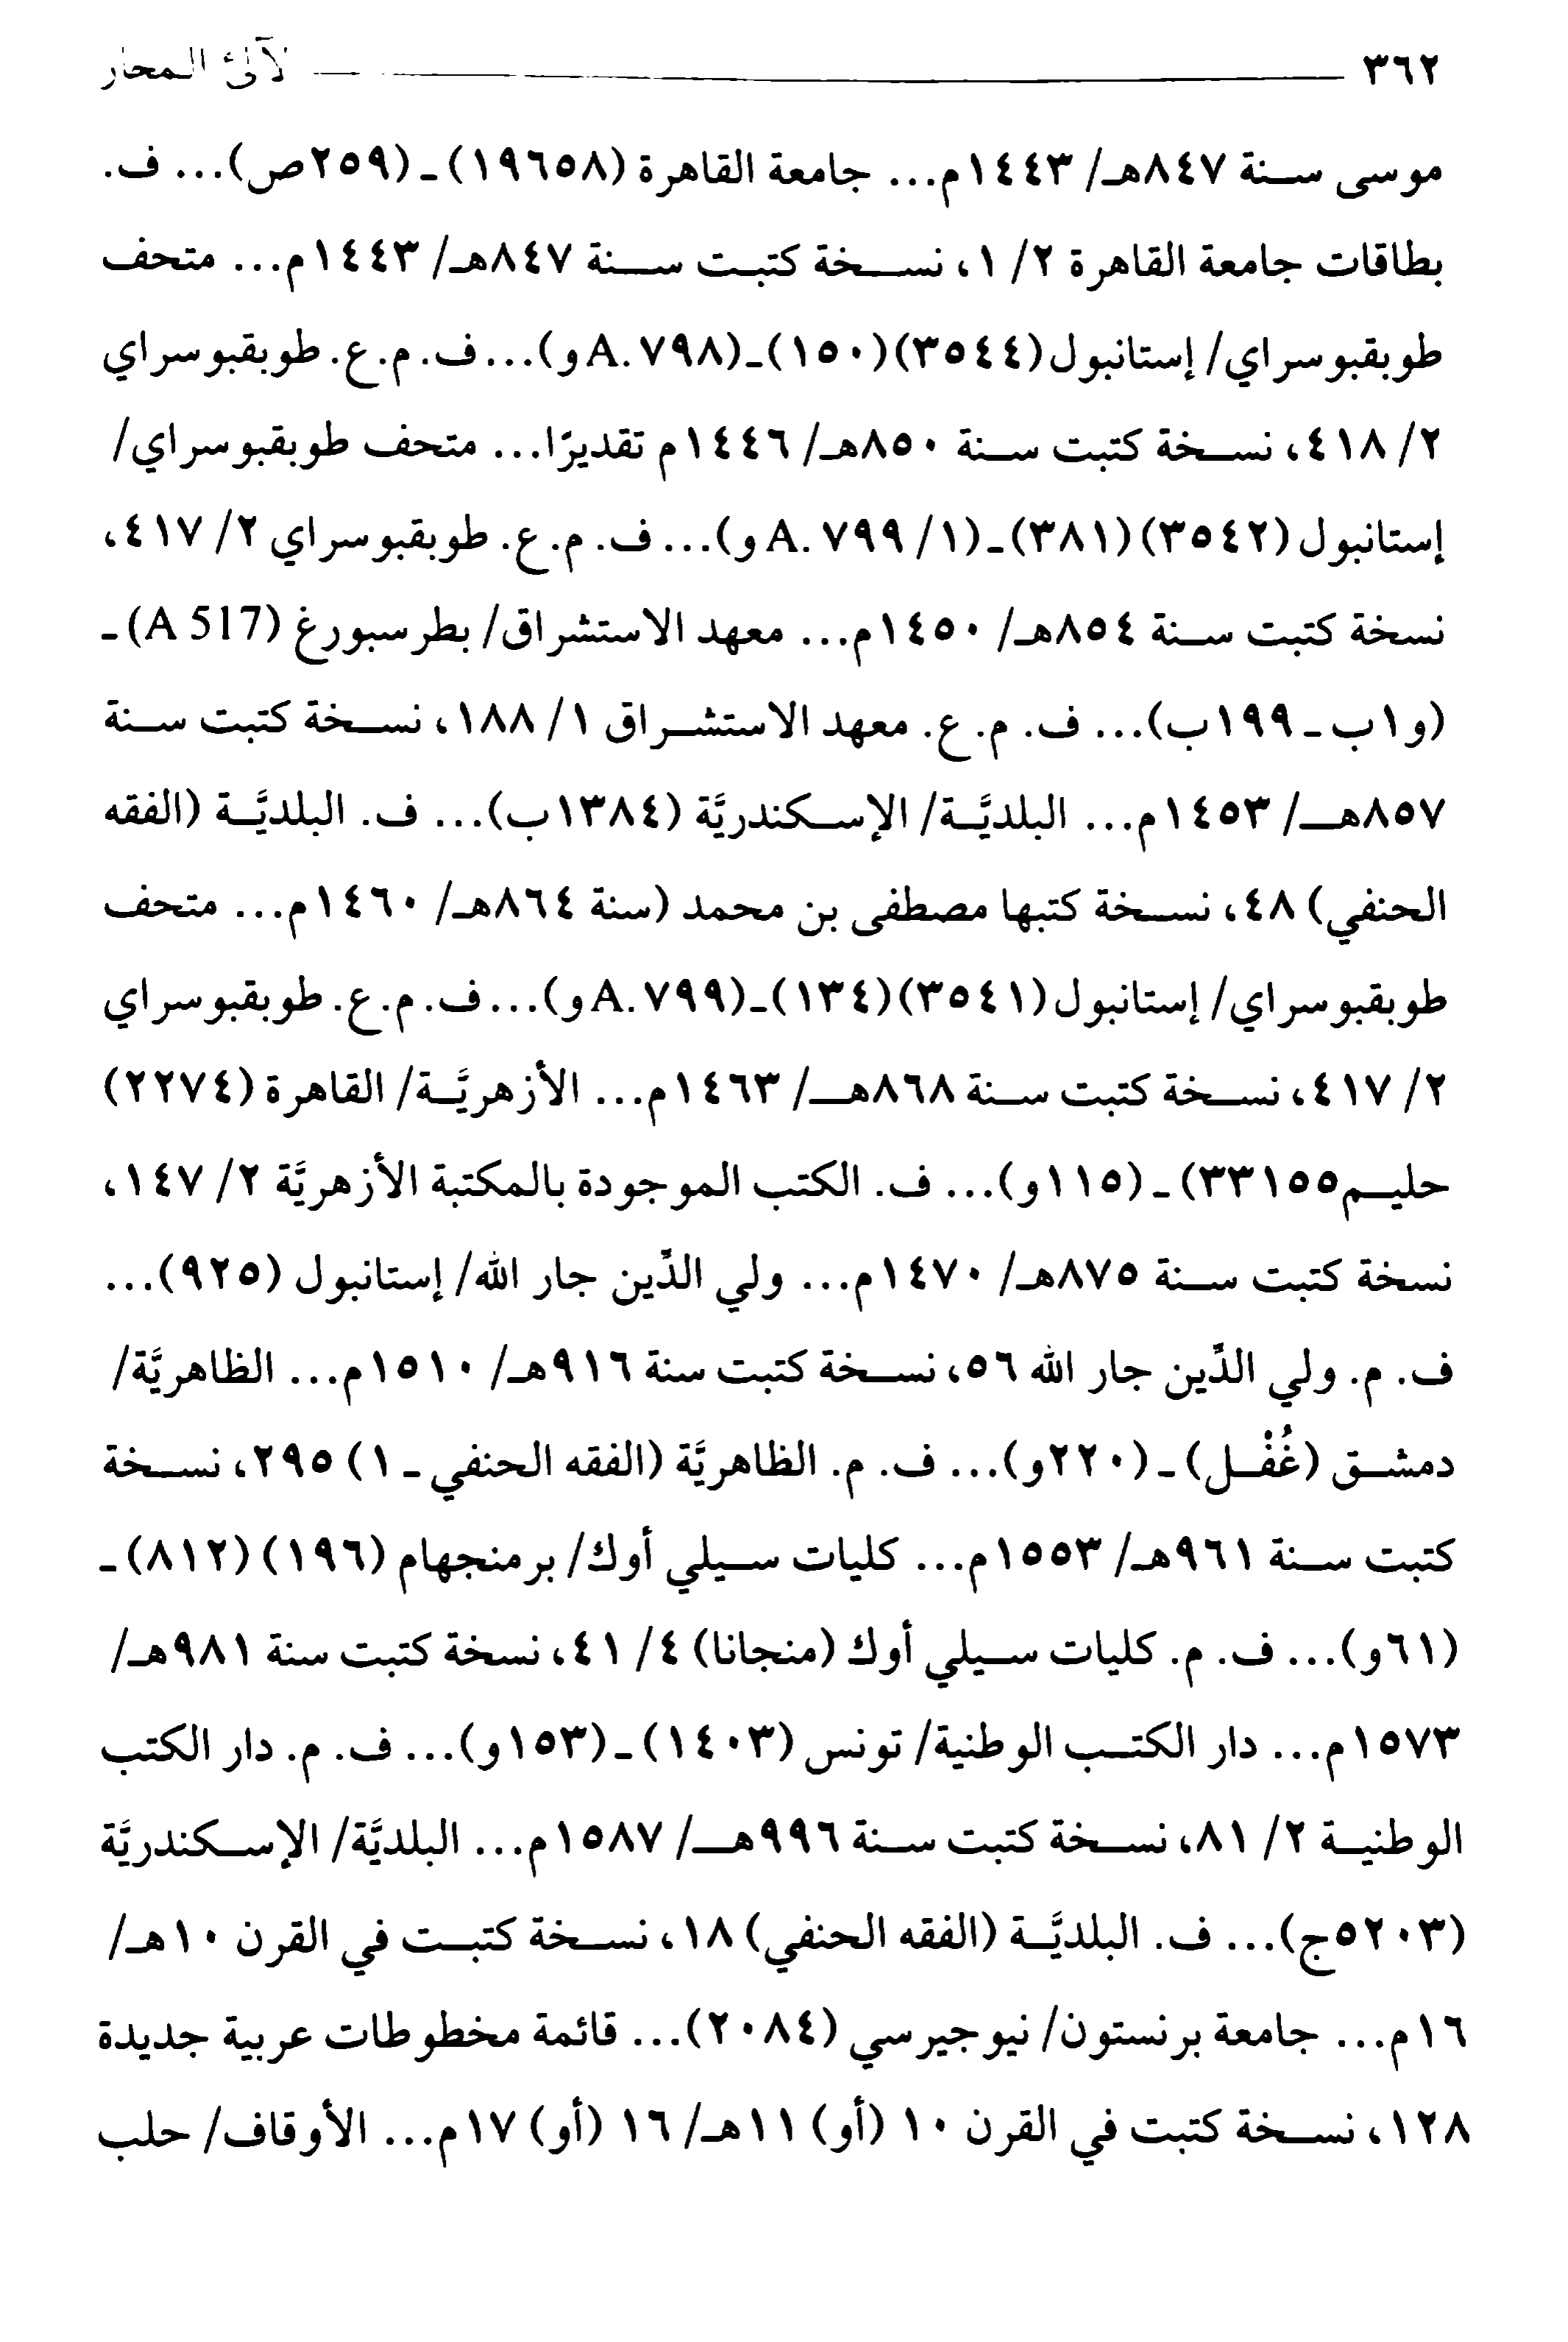 ٣٦٢ لآلئ المحار
موسى سنة ٨٤٧هـ/ ١٤٤٣م... جامعة القاهرة (١٩٦٥٨) ـ (٢٥٩ص)... ف.
بطاقات جامعة القاهرة ٢/ ١، نسخة كتبت سنة ٨٤٧هـ/ ١٤٤٣م... متحف
طوبقبوسراي/ إستانبول (٣٥٤٤)(١٥٠)ـ(A.٧٩٨و)... ف. م.ع. طوبقبوسراي
٢/ ٤١٨، نسخة كتبت سنة ٨٥٠هـ/ ١٤٤٦م تقديرًا... متحف طوبقبوسراي/
إستانبول (٣٥٤٢)(٣٨١)ـ(١/ A. ٧٩٩و)... ف. م.ع. طوبقبوسراي ٢/ ٤١٧،
نسخة كتبت سنة ٨٥٤هـ/ ١٤٥٠م... معهد الاستشراق/ بطرسبورغ (A 517) ـ
(و١ب ـ ١٩٩ب)... ف. م.ع. معهد الاستشراق ١/ ١٨٨، نسخة كتبت سنة
٨٥٧هـ/ ١٤٥٣م... البلديَّة/ الإسكندريَّة (١٣٨٤ب)... ف. البلديَّة (الفقه
الحنفي) ٤٨، نسخة كتبها مصطفى بن محمد (سنة ٨٦٤هـ/ ١٤٦٠م... متحف
طوبقبوسراي/ إستانبول (٣٥٤١)(١٣٤)ـ(A.٧٩٩و)... ف. م.ع. طوبقبوسراي
٢/ ٤١٧، نسخة كتبت سنة ٨٦٨هـ/ ١٤٦٣م... الأزهريَّة/ القاهرة (٢٢٧٤)
حليم٣٣١٥٥) ـ (١١٥و)... ف. الكتب الموجودة بالمكتبة الأزهريَّة ٢/ ١٤٧،
نسخة كتبت سنة ٨٧٥هـ/ ١٤٧٠م... ولي الدِّين جار الله/ إستانبول (٩٢٥)...
ف. م. ولي الدِّين جار الله ٥٦، نسخة كتبت سنة ٩١٦هـ/ ١٥١٠م... الظاهريَّة/
دمشق (غُفْل) ـ (٢٢٠و)... ف. م. الظاهريَّة (الفقه الحنفي ـ ١) ٢٩٥، نسخة
كتبت سنة ٩٦١هـ/ ١٥٥٣م... كليات سيلي أوك/ برمنجهام (١٩٦) (٨١٢) ـ
(٦١و)... ف. م. كليات سيلي أوك (منجانا) ٤/ ٤١، نسخة كتبت سنة ٩٨١هـ/
١٥٧٣م... دار الكتب الوطنية/ تونس (١٤٠٣) ـ (١٥٣و)... ف. م. دار الكتب
الوطنية ٢/ ٨١، نسخة كتبت سنة ٩٩٦هـ/ ١٥٨٧م... البلديَّة/ الإسكندريَّة
(٥٢٠٣ج)... ف. البلديَّة (الفقه الحنفي) ١٨، نسخة كتبت في القرن ١٠هـ/
١٦م... جامعة برنستون/ نيوجيرسي (٢٠٨٤)... قائمة مخطوطات عربية جديدة
١٢٨، نسخة كتبت في القرن ١٠ (أو) ١١هـ/ ١٦ (أو) ١٧م... الأوقاف/ حلب